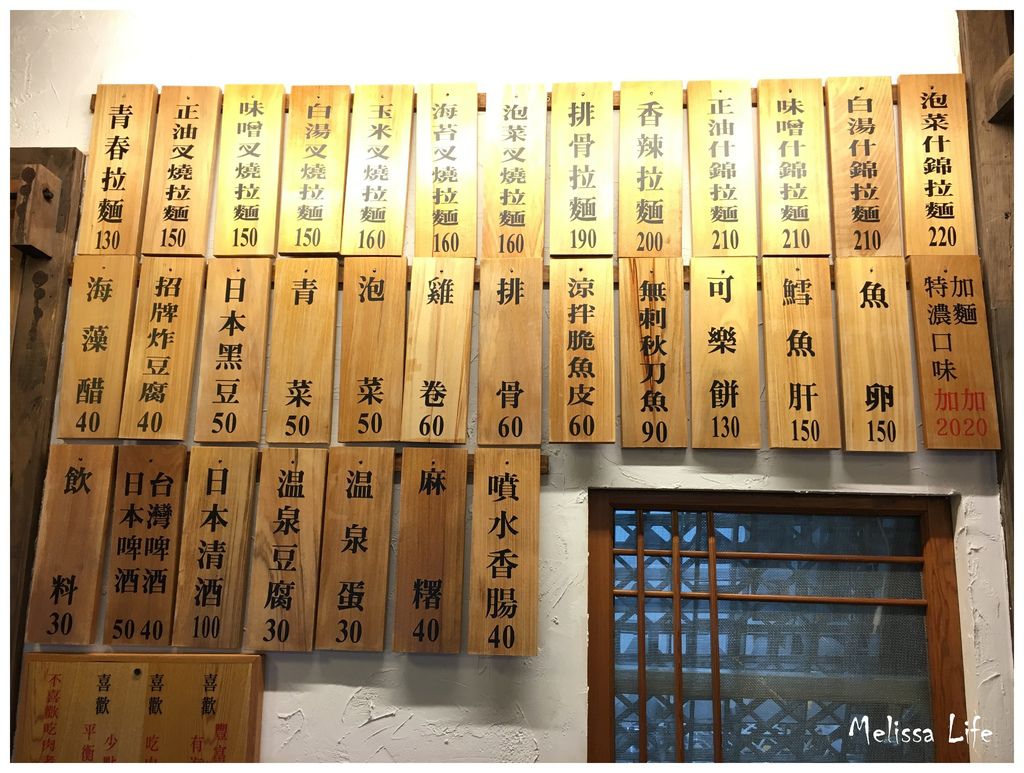 青春拉麵 130
正油叉燒拉麵 150
味噌叉燒拉麵 150
白湯叉燒拉麵 150
玉米叉燒拉麵 160
海苔叉燒拉麵 160
泡菜叉燒拉麵 160
排骨拉麵 190
香辣拉麵 200
正油什錦拉麵 210
味噌什錦拉麵 210
白湯什錦拉麵 210
泡菜什錦拉麵 220
海藻醋 40
招牌炸豆腐 40
日本黑豆 50
青菜 50
泡菜 50
雞卷 60
排骨 60
涼拌脆魚皮 60
無刺秋刀魚 90
可樂餅 130
鱈魚肝 150
魚卵 150
加麵 加20
特濃口味 加20
飲料 30
台灣啤酒 40
日本啤酒 50
日本清酒 100
溫泉豆腐 30
溫泉蛋 30
麻糬 40
噴水香腸 40
喜歡 豐富
喜歡 有
喜歡 吃
喜歡 少
平衡
不喜歡吃肉
Melissa Life